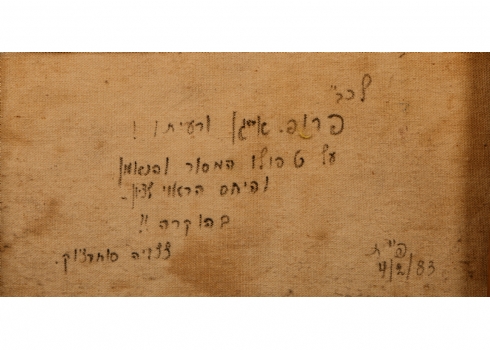 לכב'
פרופ. אייגן ורעיתו !
על טפולו המסור והנאמן
והיחס הראוי לציון.
בהוקרה !!
סוחרצוק.
4/2/83